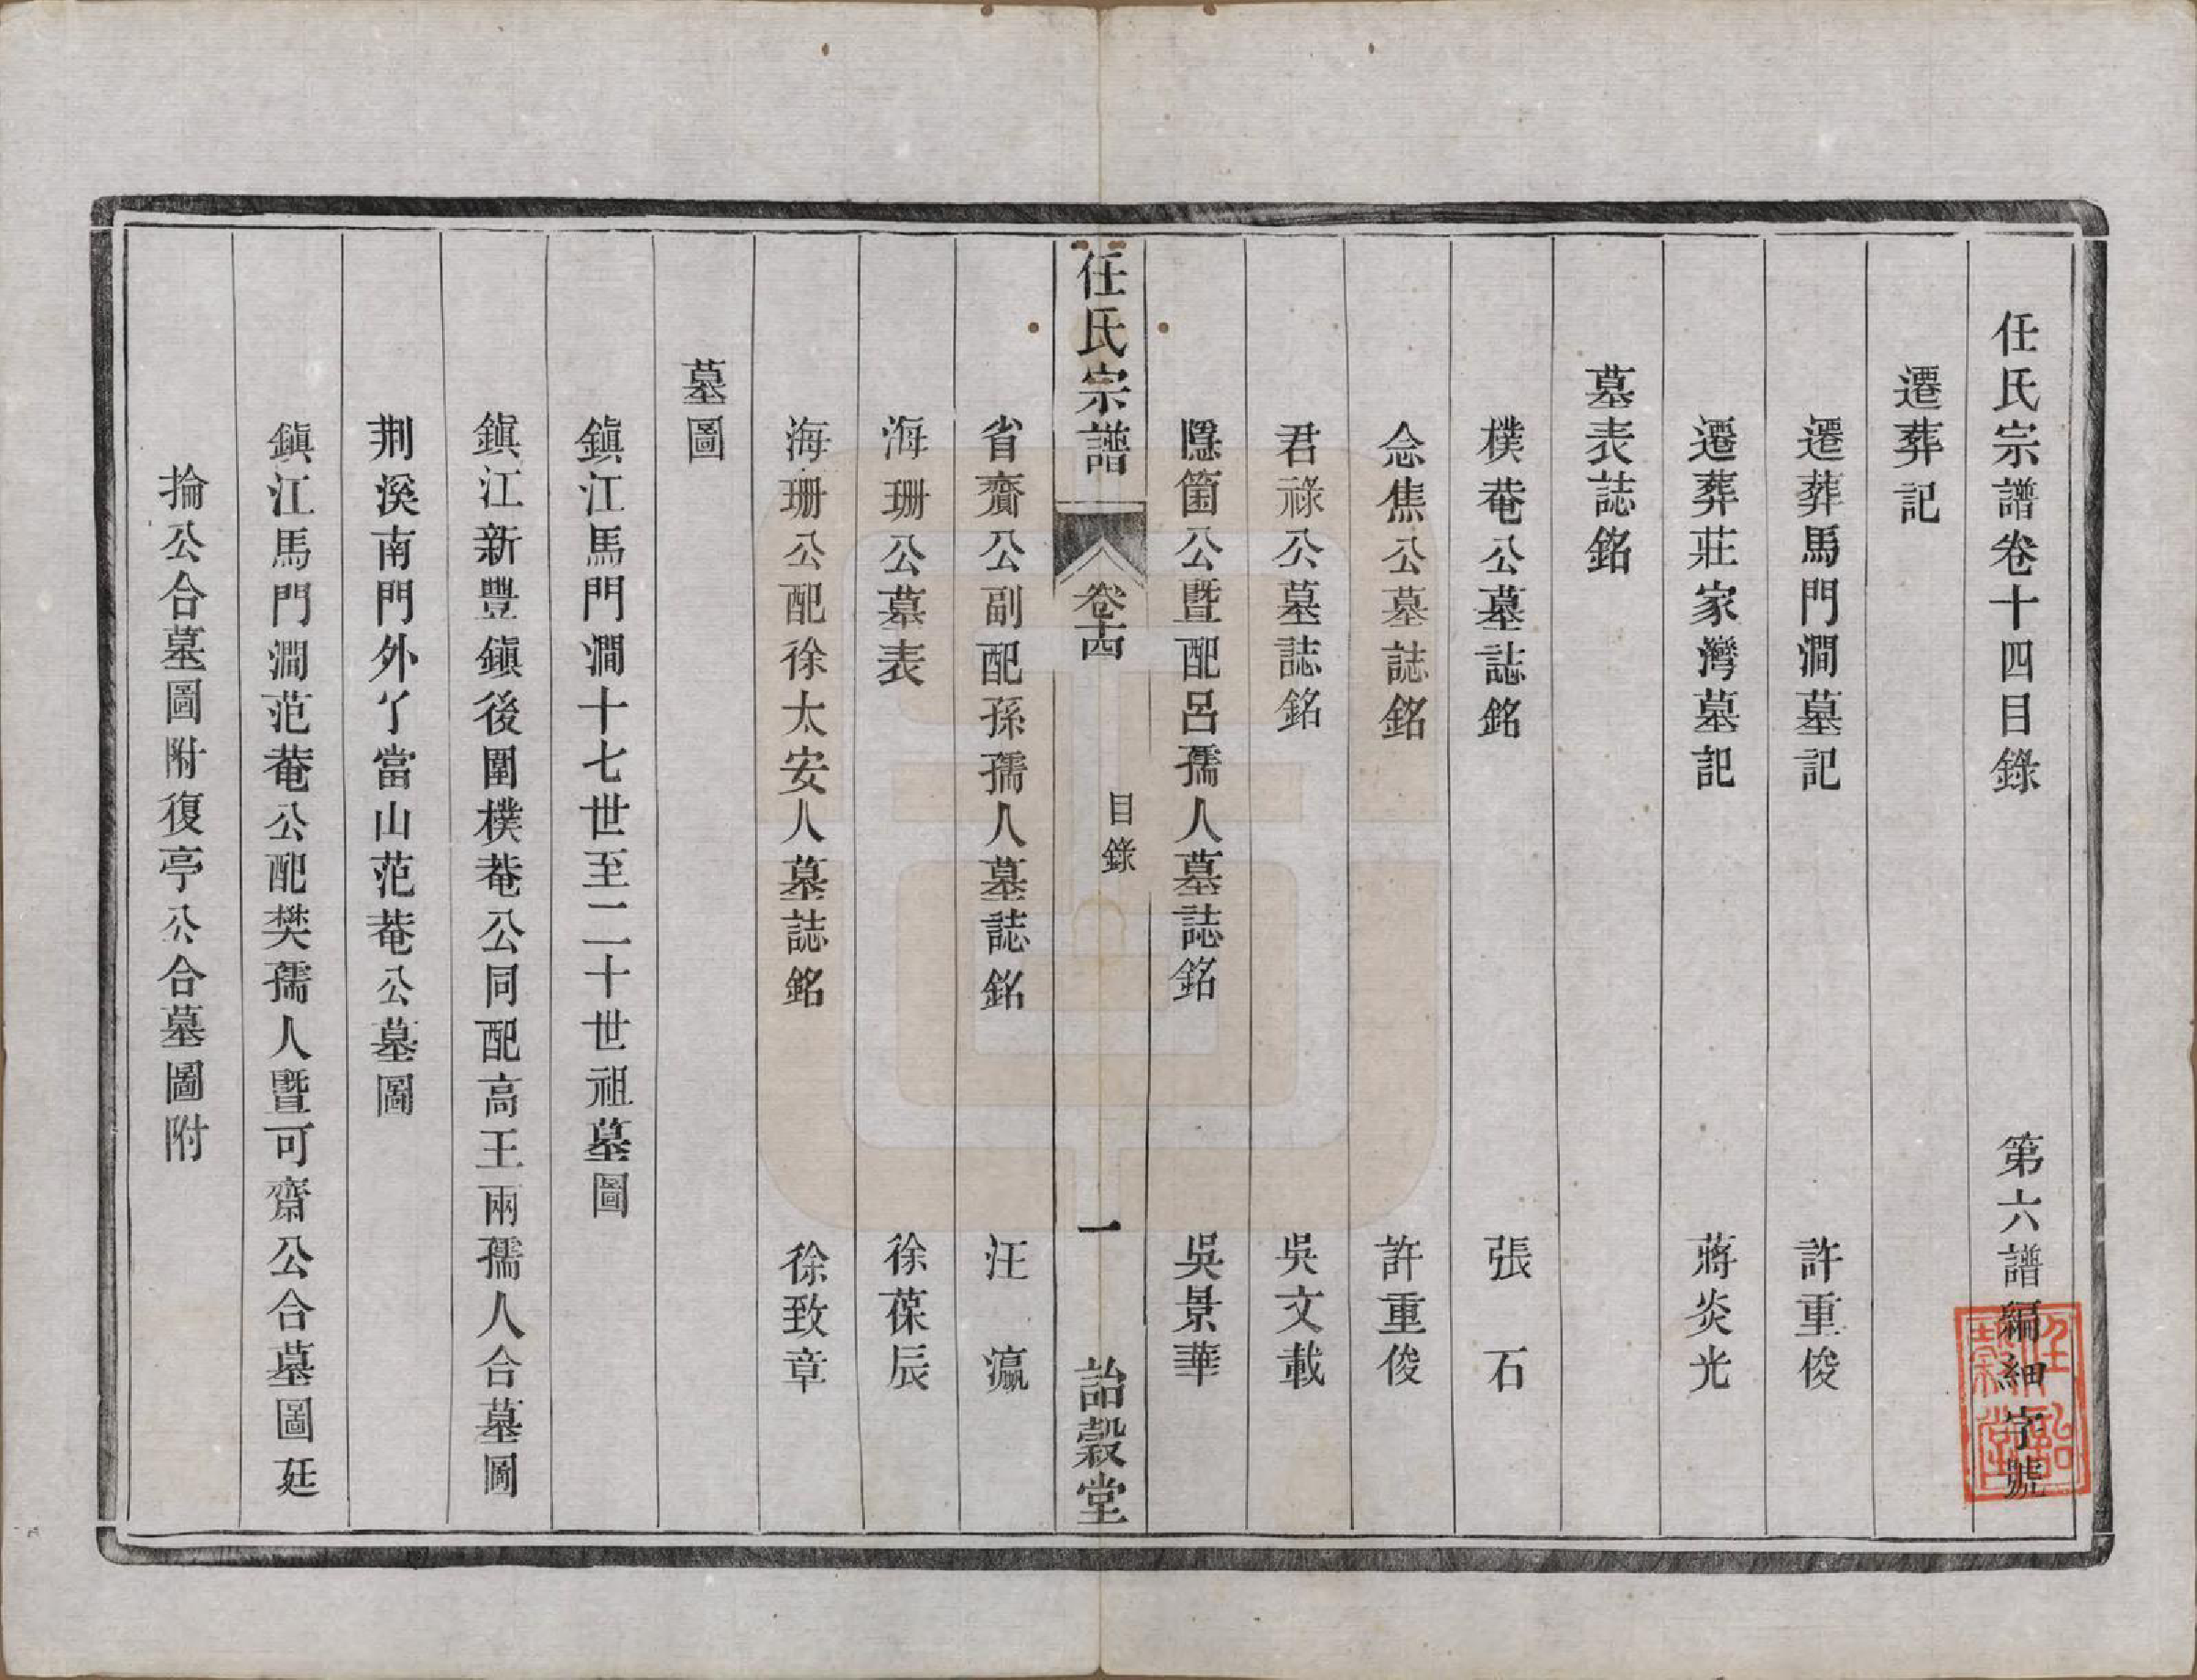 任氏宗譜卷十四目錄 第六譜編細字號
遷葬記
遷葬馬門澗墓記 許重俊
遷葬莊家灣墓記 蔣炎光
墓表誌銘
樸菴公墓誌銘 張石
念焦公墓誌銘 許重俊
君祿公墓誌銘 吳文載
隱箇公暨配呂孺人墓誌銘 吳景華
任氏宗譜 卷十四 目錄 一 詒穀堂
省齋公副配孫孺人墓誌銘 汪瀛
海珊公墓表 徐葆辰
海珊公配徐太安人墓誌銘 徐致章
墓圖
鎮江馬門澗十七世至二十世祖墓圖
鎮江新豐鎮後圍樸菴公同配高王兩孺人合墓圖
荆溪南門外了當山范菴公墓圖
鎮江馬門澗范菴公配樊孺人暨可齋公合墓圖 廷
掄公合墓圖附 復亭公合墓圖附